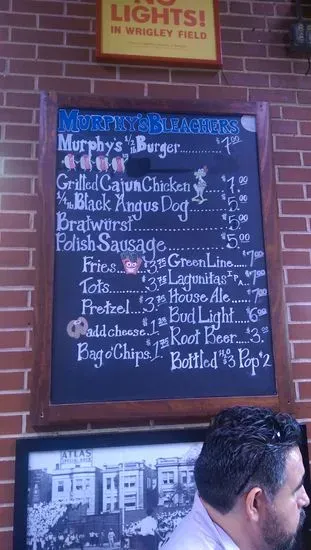 NO
LIGHTS!
IN WRIGLEY FIELD
MURPHY'S BLEACHERS
Murphy's ½ lb Burger........$7.00
Grilled Cajun Chicken.....$7.00
¼ lb Black Angus Dog........$5.00
Bratwurst..................$5.00
Polish Sausage.............$5.00
Fries....$3.75
Tots......$3.75
Pretzel...$3.75
add cheese.$1.25
Bag o' Chips.$1.75
Green Line....$7.00
Lagunitas IPA.$7.00
House Ale...$7.00
Bud Light...$6.00
Root Beer...$3.00
Bottled H2O $3 Pop $2
ATLAS